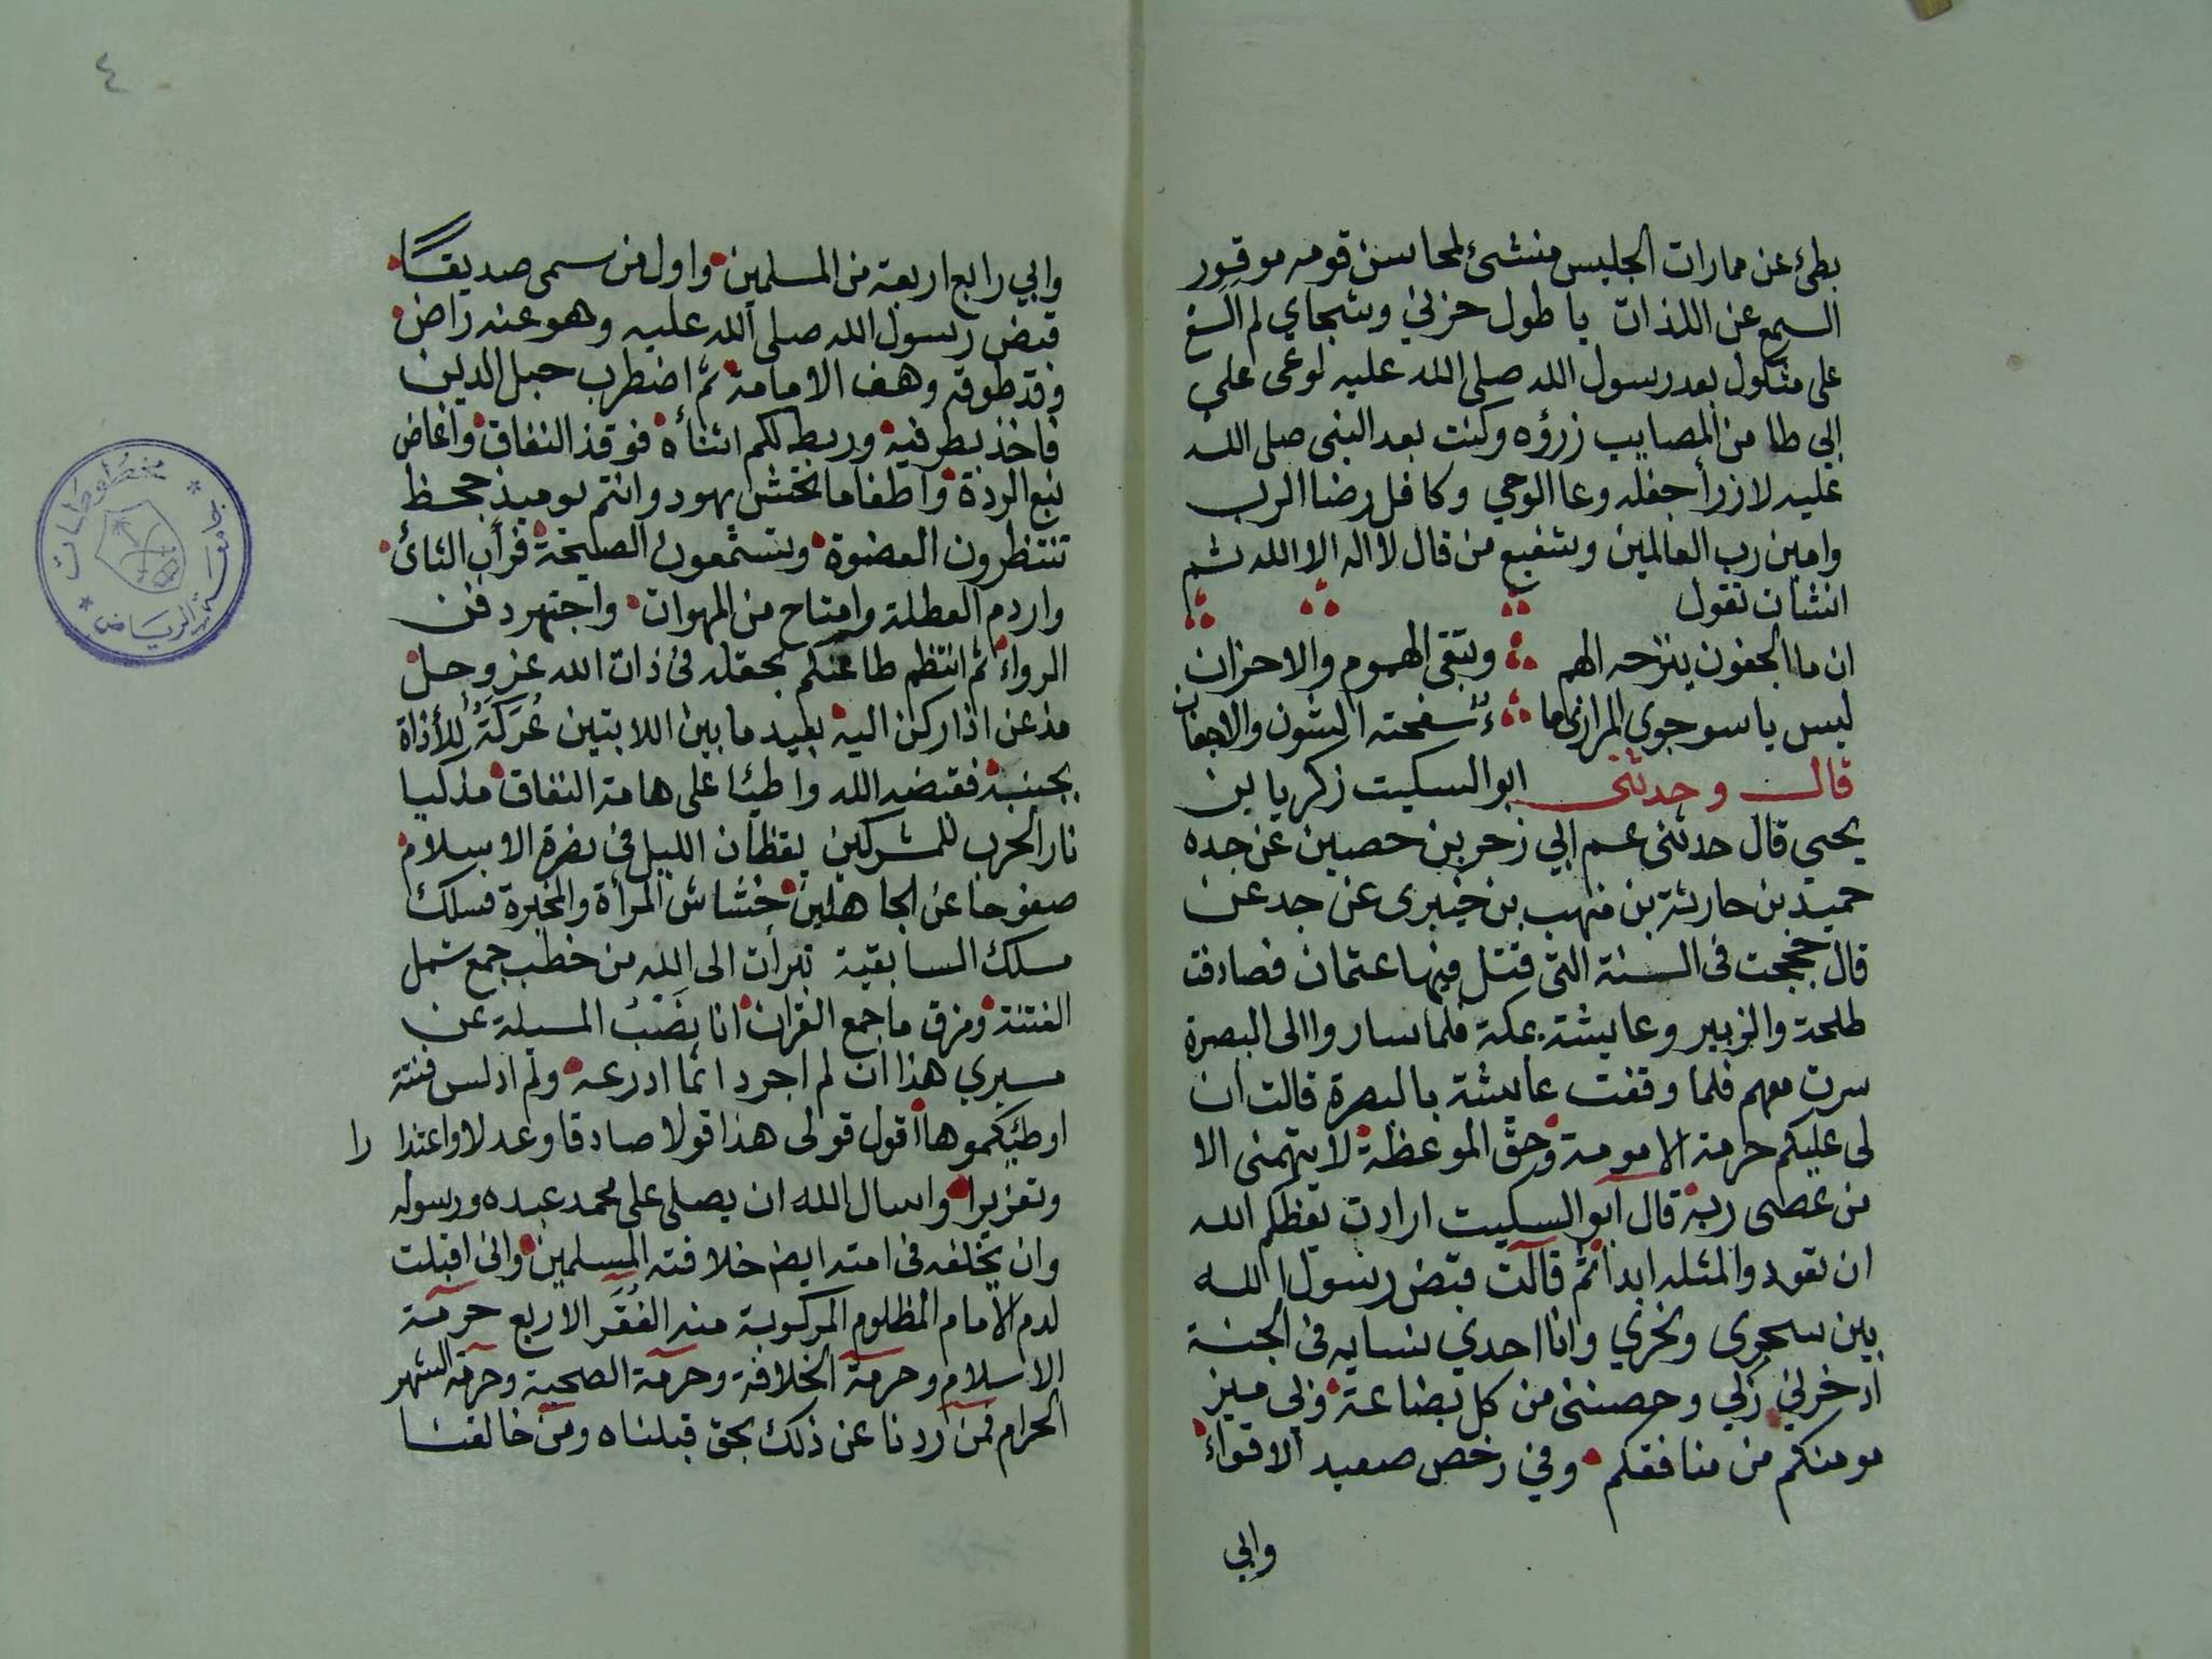 بطئ عن ممارات الجليس منشئ لمحاسن قومه موقور
السمع عن اللذات يا طول حزني وشجاي لم الشغ
على مثكول بعد رسول الله صلى الله عليه لوعى على
ابي طا من المصايب زرؤه وكنت بعد النبى صلى الله
عليه لا زرأ جفله وعا الوحي وكافل رضا الرب
وامين رب العالمين وشفيع من قال لا اله الا الله ثم
انشات تقول
ان ما الجفون ينزحه الهم وتبقى الهموم والاحزان
ليس ياسو جوى المرازى ما سفحته الشون والاجفان
قال وحدثنى ابو السكيت زكريا بن
يحيى قال حدثنى عم ابي زحر بن حصين عن جده
حميد بن حارثة بن منهب بن خيبرى عن جد عن
قال حججت فى السنة التى قتل فيها عثمان فصادفت
طلحة والزبير وعايشة بمكة فلما ساروا الى البصرة
سرت معهم فلما وقفت عايشة بالبصرة قالت ان
لى عليكم حرمة الامومة وحق الموعظة لا يتهمنى الا
من عصى ربه قال ابو السكيت ارادت تعظكم الله
ان تعودوا لمثله ابدا ثم قالت قبض رسول الله
بين سحرى ونحري وانا احدي نسايه فى الجنة
ادخرني ربي وحصننى من كل بضاعة وبى ميز
مومنكم من منافقكم وفي رخص صعيد الاقواء
وابي
٤
وابي رابع اربعة من المسلمين واول من سمى صديقًا
قبض رسول الله صلى الله عليه وهو عنه راض
وقد طوقه وهف الامامة ثم اضطرب حبل الدين
فاخذ بطرفيه وربط لكم اثناءه فوقذ النفاق واغاض
نبع الردة واطفا ما تحتش يهود وانتم يوميذ جحظ
تنتظرون العضوة وتستمعون الصيحة فرأب الثائ
واردم العطلة وامتاح من المهوات واجتهر دفن
الرواء ثم انتظم طاعتكم بحقله فى ذات الله عز وجل
مذعن اذا ركن اليه بعيد ما بين اللابتين عُرَكَةٌ للأذاة
بجنبه فقبضه الله واطيًا على هامة النفاق مذكيا
نار الحرب للمشركين يقظان الليل فى نصرة الاسلام
صفوحا عن الجاهلين خشاش المرأة والمخبرة فسلك
مسلك السابقية تبرأت الى الله من خطب جمع شمل
الفتنة ومزق ما جمع القران انا نصب المسيلة عن
مسيري هذا ان لم اجرد اثما ادرعه ولم ادلس فتنة
اوطيكموها اقول قولى هذا قولا صادقا وعدلا واعتذارا
وتعزيرا واسال الله ان يصلى على محمد عبده ورسوله
وان يخلفه فى امته ايض خلافته المسلمين وانى اقبلت
لدم الامام المظلوم المركوبة منه الفُقَر الاربع حرمة
الاسلام وحرمة الخلافة وحرمة الصحبة وحرمة الشهر
الحرام فمن ردنا عن ذلك بحق قبلناه ومن خالفنا
مخطوطات
جامعة الرياض